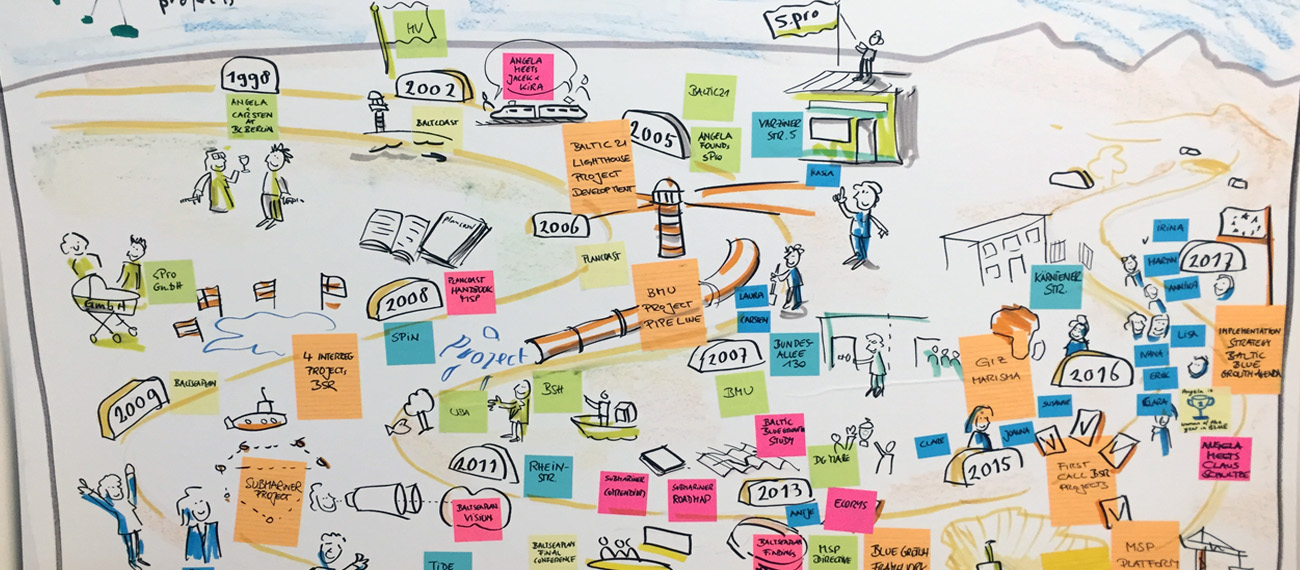 projects
HV
s.pro
1998
2002
ANGELA
MEETS
JACEK +
KIRA
ANGELA
+
CARSTEN
AT
BC BERLIN
BALTCOAST
BALTIC 21
2005
ANGELA
FOUNDS
SPRO
VARZINER
STR. 5
BALTIC 21
LIGHTHOUSE
PROJECT
DEVELOPMENT
KASCA
2006
PLANCOAST
PLANCOAST
SPRO
GmbH
GmbH
2008
PLANCOAST
HANDBOOK
MSP
BMU
PROJECT
PIPELINE
LAURA
CARSTEN
IRINA
MARTIN
2017
ANNIKA
KÄRNTENER
STR.
SPIN
Project
4 INTERREG
PROJECTS
BSR
2007
BUNDES-
ALLEE
130
GIZ
MARISMA
2016
LISA
IVANA
ERIK
IMPLEMENTATION
STRATEGY
BALTIC
BLUE
GROWTH AGENDA
2009
BALTSEAPLAN
UBA
BSH
BMU
SUSANNE
CLARA
Angela is
woman of the
year in BLUE
BALTIC
BLUE GROWTH
STUDY
DG MARE
CLARE
JOANNA
2015
ANGELA
MEETS
CLAUS
SCHULTZE
2011
RHEIN-
STR.
SUBMARINER
PROJECT
SUBMARINER
COMPENDIUM
SUBMARINER
ROADMAP
2013
ANTJE
ECORYS
FIRST
CALL BSR
PROJECTS
BALTSEAPLAN
VISION
TIDE
BALTSEAPLAN
FINAL
CONFERENCE
BALTSEAPLAN
FINDINGS
MSP
DIRECTIVE
BLUE GROWTH
FRAMEWORK
MSP
PLATFORM